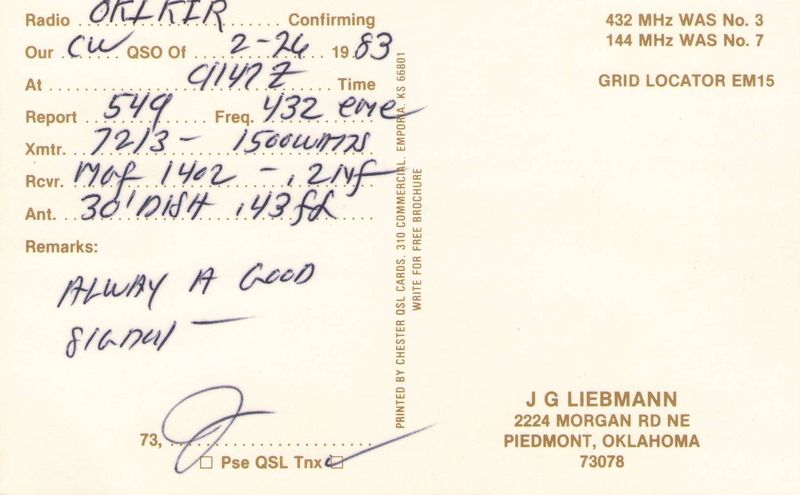 Radio OK1KIR Confirming
Our CW QSO Of 2-26 1983
At 0147Z Time
Report 549 Freq. 432 eme
Xmtr. 7213 - 1500WATTS
Rcvr. MGF 1402 - .2 Nf
Ant. 30' DISH .43 fd
Remarks:
ALWAY A GOOD
SIGNAL —
73,
☐ Pse QSL Tnx ☐
PRINTED BY CHESTER QSL CARDS, 310 COMMERCIAL, EMPORIA, KS 66801
WRITE FOR FREE BROCHURE
432 MHz WAS No. 3
144 MHz WAS No. 7
GRID LOCATOR EM15
J G LIEBMANN
2224 MORGAN RD NE
PIEDMONT, OKLAHOMA
73078